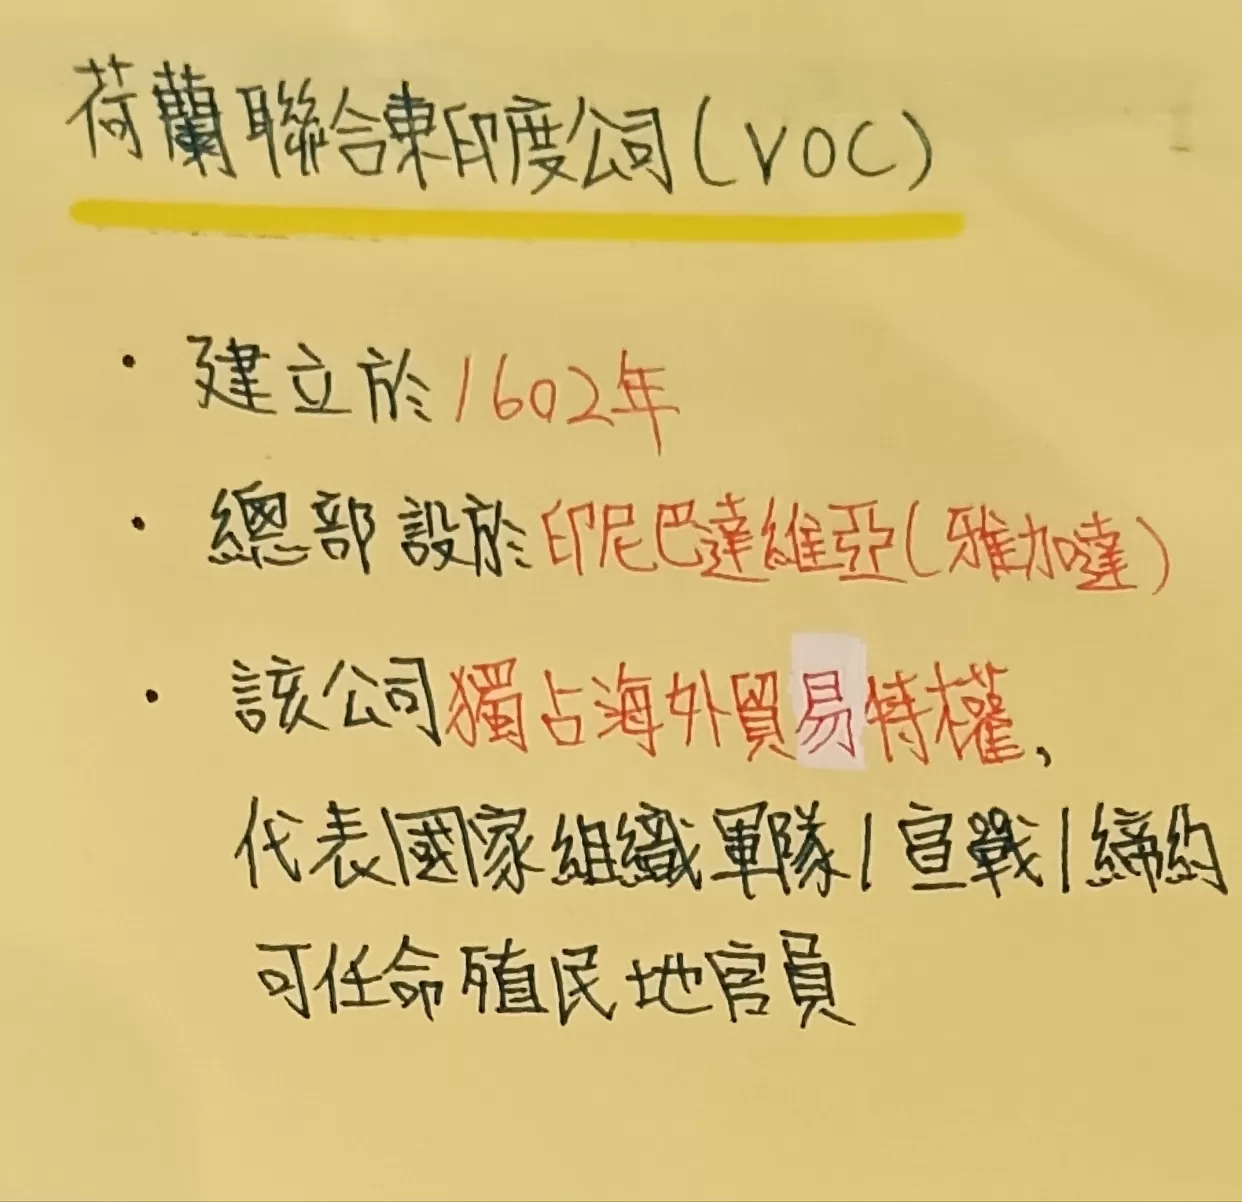 荷蘭聯合東印度公司(VOC)
・建立於1602年
・總部設於印尼巴達維亞(雅加達)
・該公司獨占海外貿易特權,
代表國家組織軍隊/宣戰/締約
可任命殖民地官員